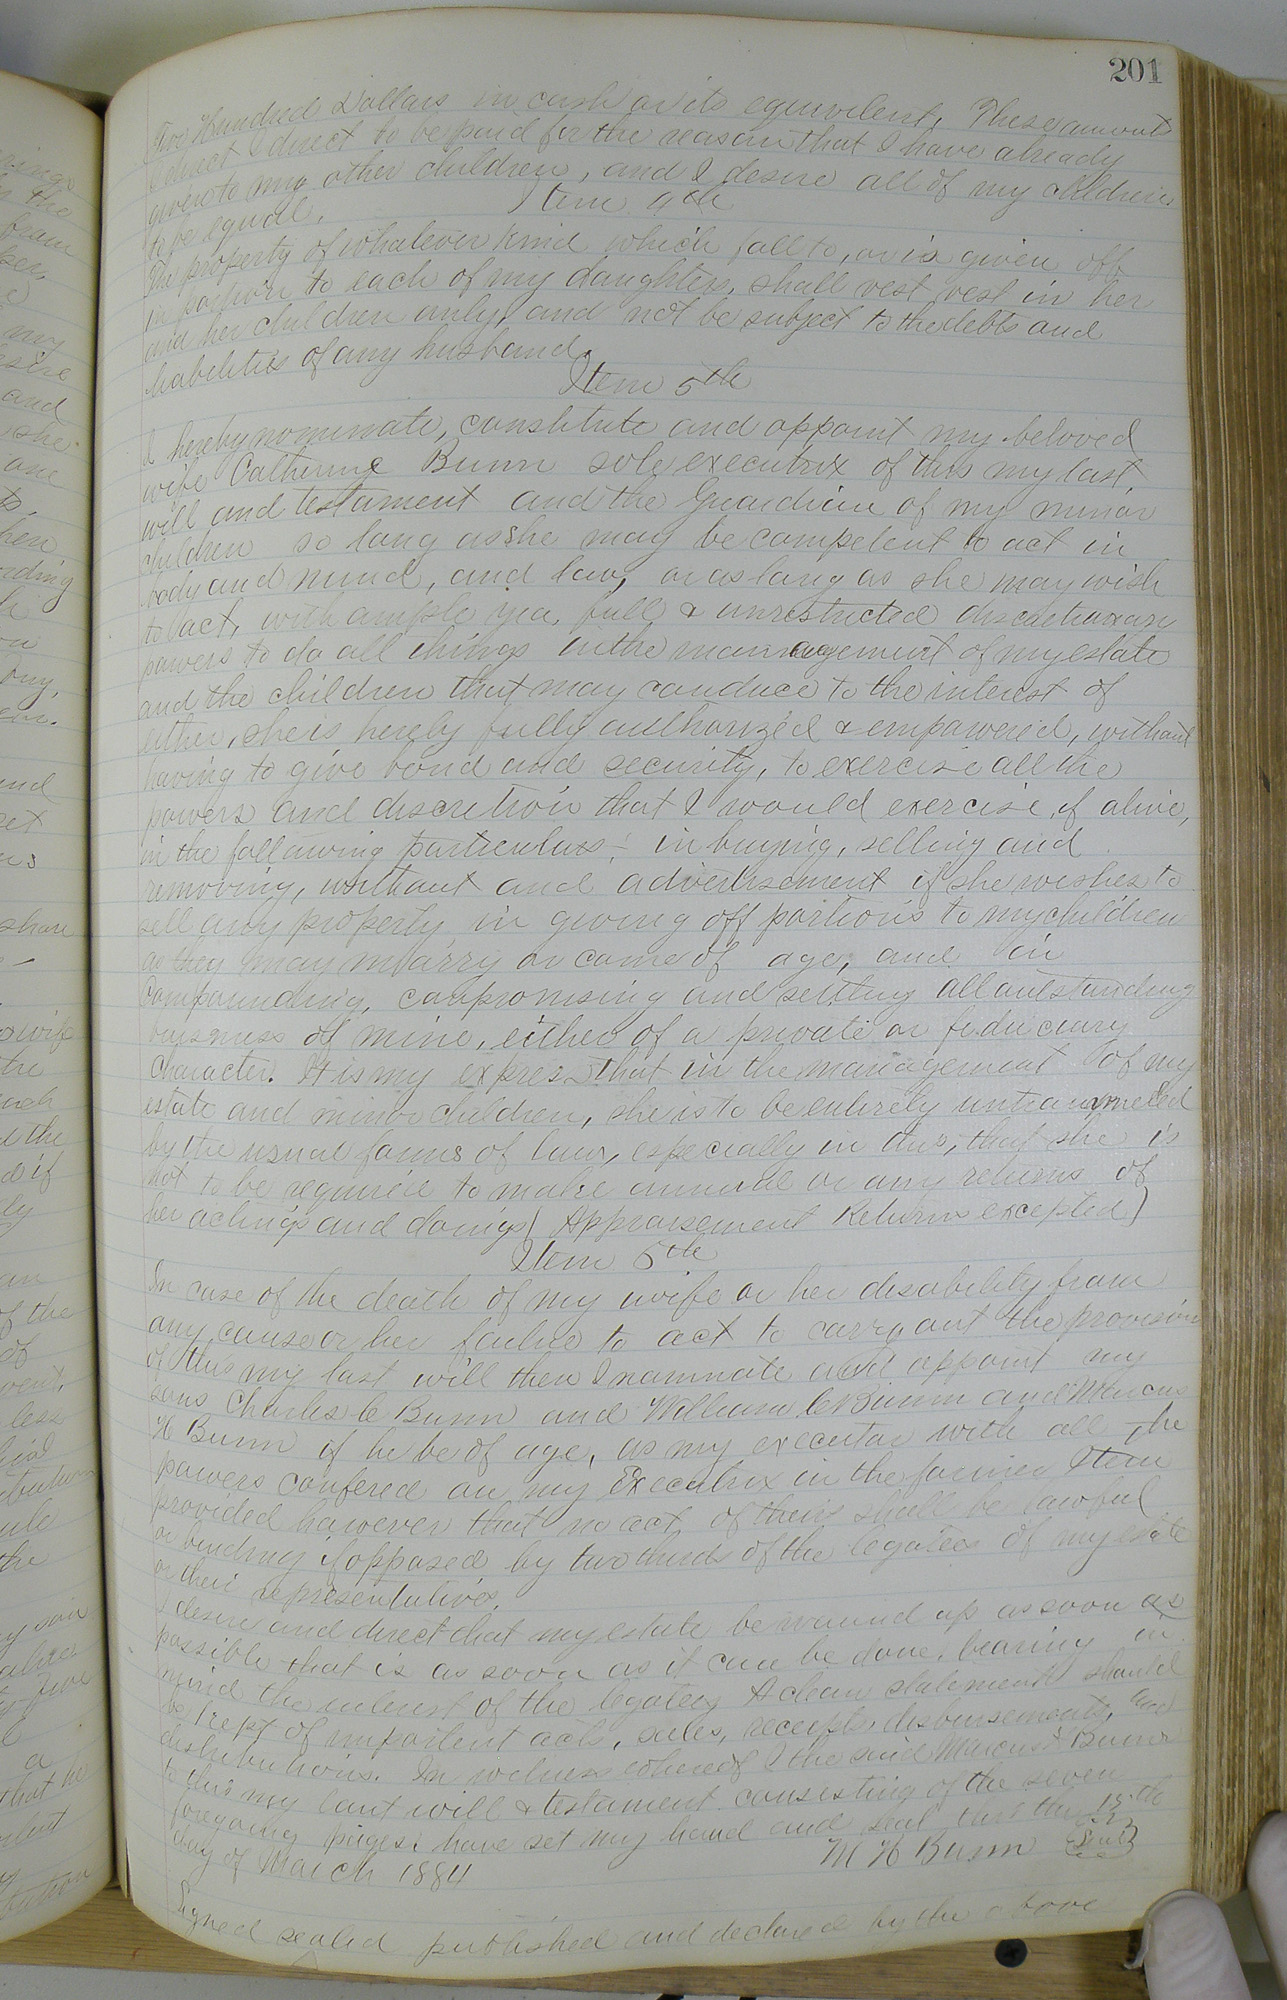 201
Five Hundred Dollars in cash or its equivalent, These amounts
I direct I direct to be paid for the reason that I have already
given to my other children, and I desire all of my children
to be equal. Item 4th
The property of whatever kind which fall to, or is given off
in portion to each of my daughters, shall vest vest in her
and her children only, and not be subject to the debts and
liabilities of any husband.
Item 5th
I hereby nominate, constitute and appoint my beloved
wife Catherine Bunn sole executrix of this my last
will and testament and the Guardian of my minor
children so long as she may be competent to act in
body and mind, and law, or as long as she may wish
to act, with ample yea, full & unrestricted discretionary
powers to do all things in the management of my estate
and the children that may conduce to the interest of
either, she is hereby fully authorized & empowered, without
having to give bond and security, to exercise all the
powers and discretion that I would exercise, if alive,
in the following particulars: in buying, selling and
removing, without and advertisement if she wishes to
sell any property, in giving off portions to my children
as they may marry or come of age, and in
Compounding, compromising and setting all outstanding
buisness of mine, either of a private or fiduciary
Character. It is my express that in the management of my
estate and minor children, she is to be entirely untrammeled
by the usual forms of law, especially in this, that she is
not to be required to make annual or any returns of
her actings and doings (Appraisement Returns excepted)
Item 6th
In case of the death of my wife or her disability from
any cause or her failure to act to carry out the provision
of this my last will then I nominate and appoint my
sons Charles C Bunn and William C Bunn and Marcus
H Bunn if he be of age, as my executor with all the
powers confered on my Executrix in the former Item
provided however that no act of theirs shall be lawful
or binding if opposed by two thirds of the legatees of my estate
or their representatives.
I desire and direct that my estate be wound up as soon as
possible that is as soon as it can be done, bearing in
mind the interest of the legatees A clear statement should
be kept of important acts, sales, receipts, disbursements, and
distributions. In witness whereof I the said Marcus H Bunn
to this my last will & testament consisting of the seven
foregoing pages: have set my hand and seal this the 15th
day of March 1884 M H Bunn (Seal)
Signed sealed published and declared by the above